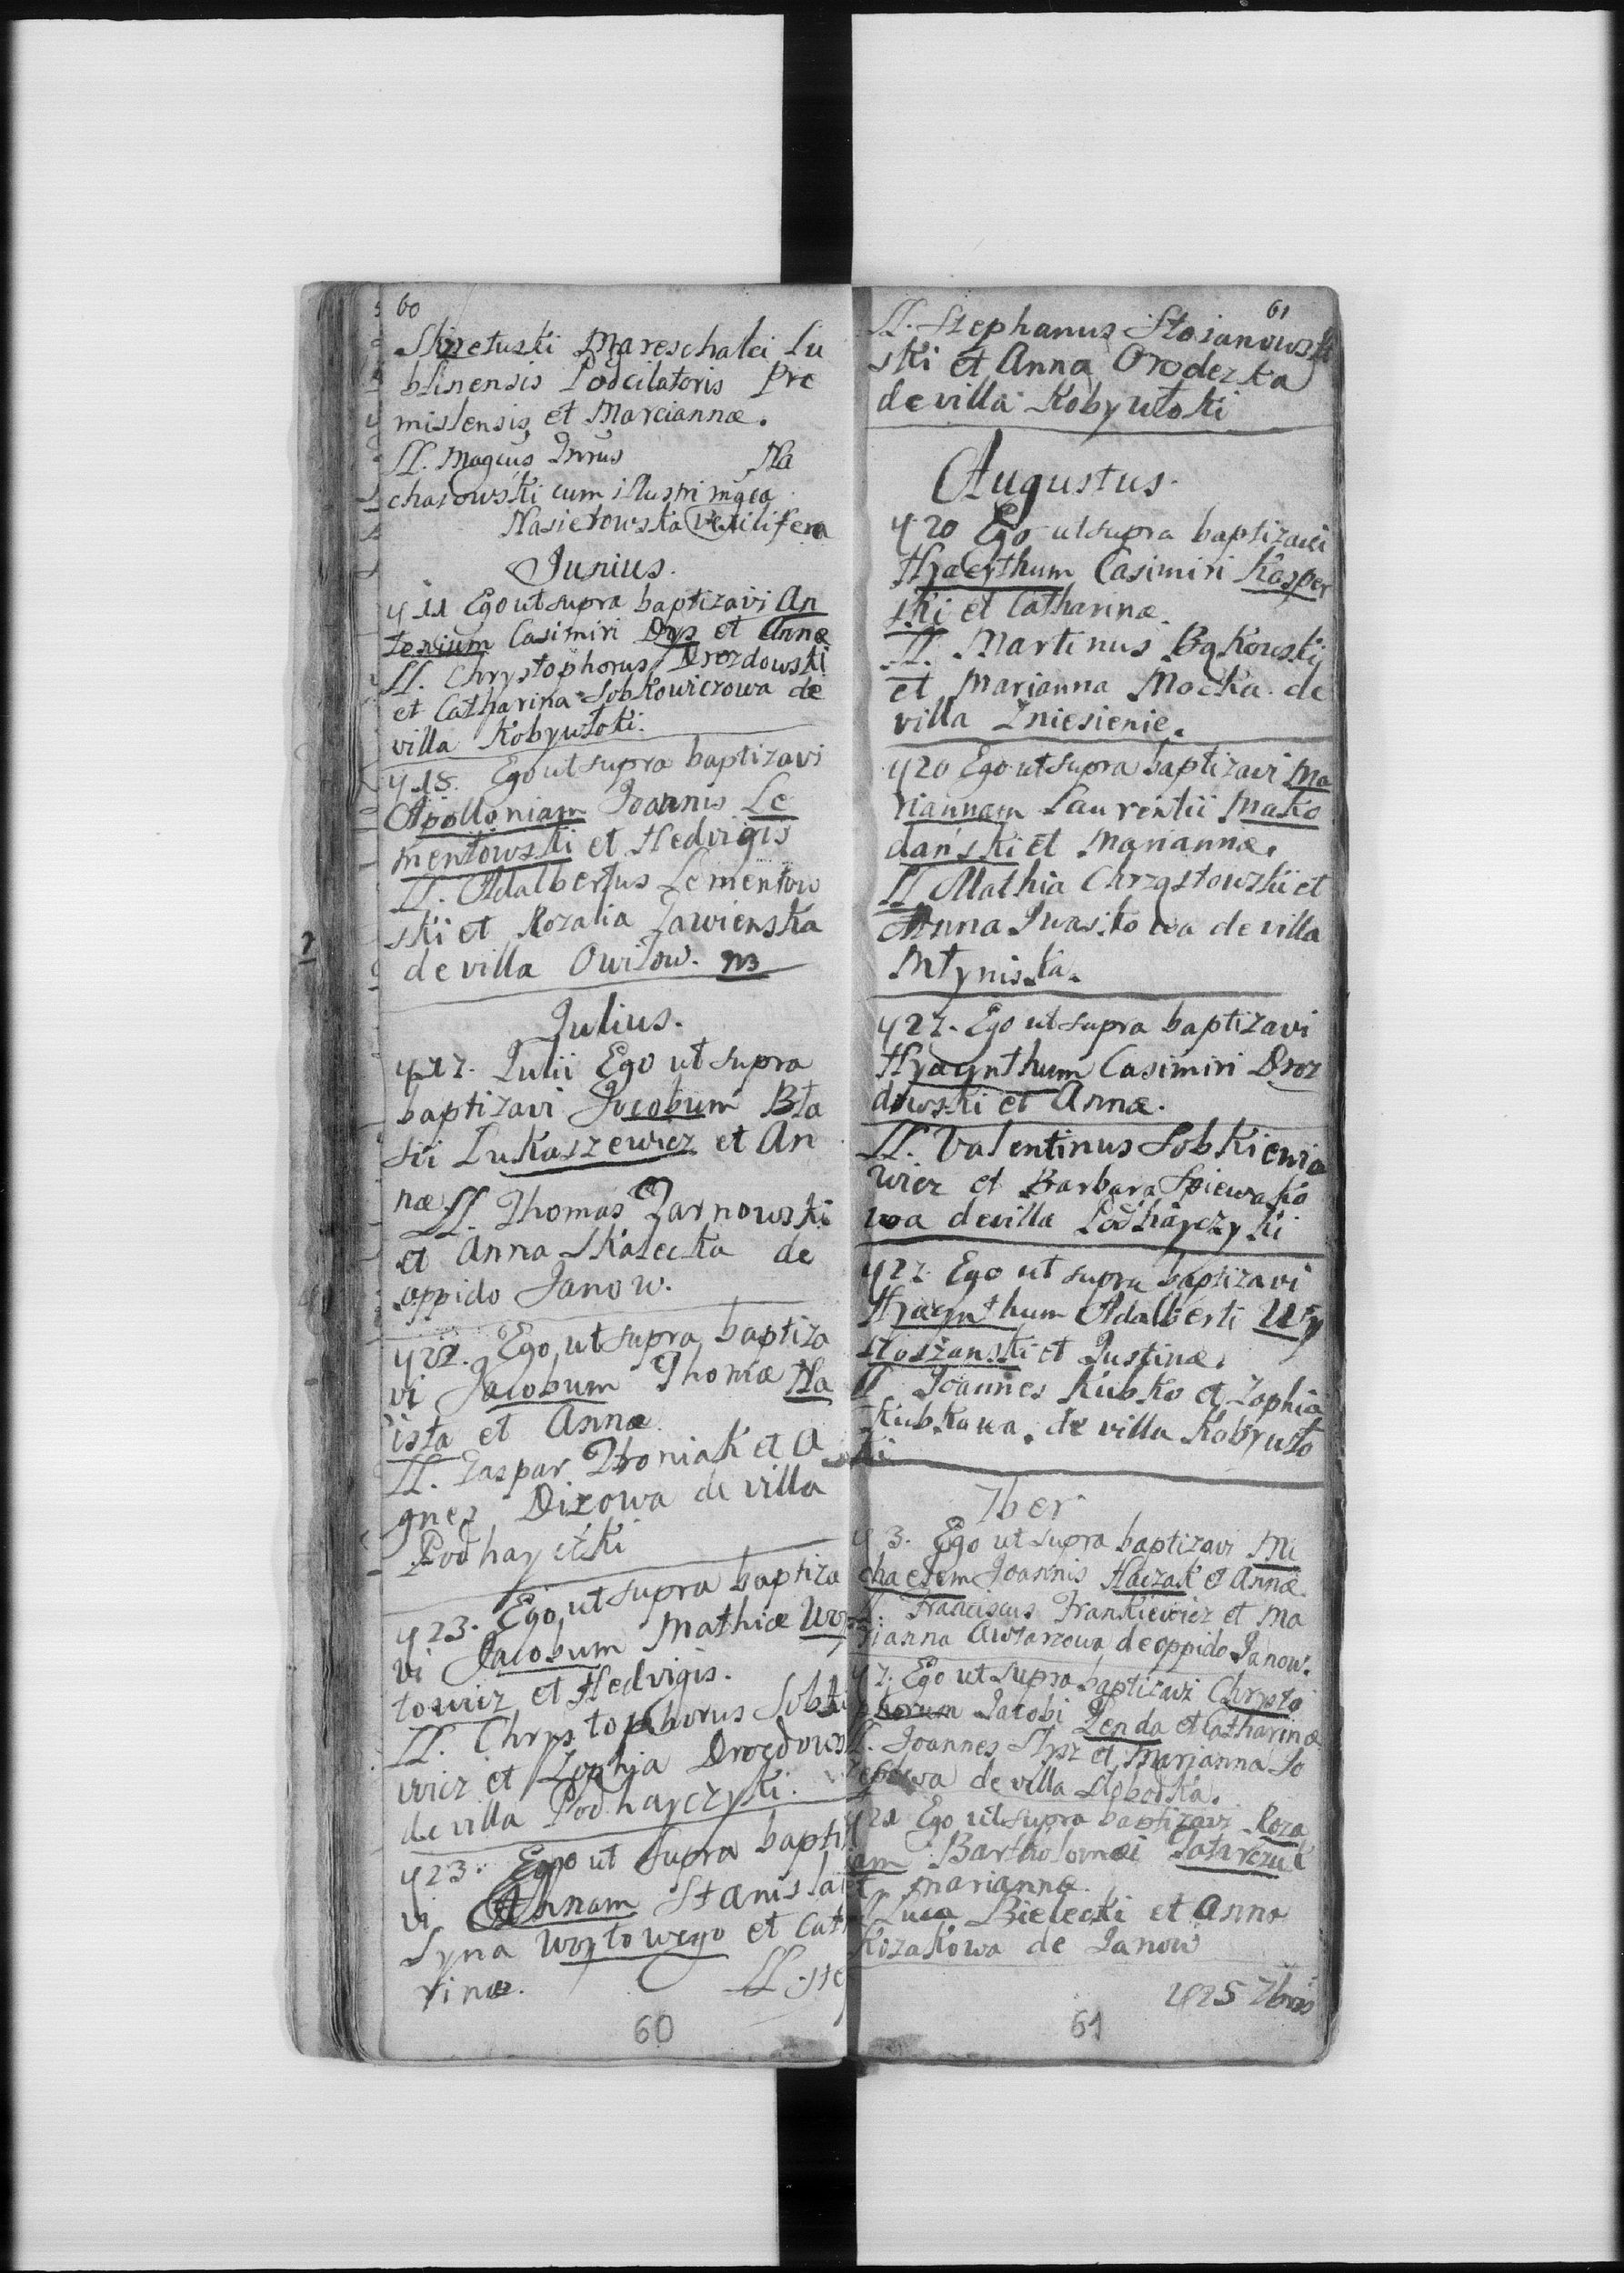 60
Skrzetuski Mareschalci Lu
blinensis Podcilatoris Pre
mislensis et Marciannæ.
LL. Magcus Dnus Na
charowski cum illustri mgca
Nasietowska Vexilifera
Junius.
y 11 Ego ut supra baptizavi An
tonium Casimiri Dys et Annæ
LL. Chrystophorus Drozdowski
et Catharina Sobkowiczowa de
villa Kobyułoki.
y 18. Ego ut supra baptizavi
Apolloniam Joannis Le
mentowski et Hedvigis
LL. Adalbertus Lementow
ski et Rozalia Zawienska
de villa Owitow.
Julius.
y 17. Julii Ego ut supra
baptizavi Jacobum Bła
sii Lukaszewicz et An
næ LL. Thomas Zarnowski
et Anna Skalecka de
oppido Janow.
y 22. Ego ut supra baptiza
vi Jacobum Thomæ Na
ista et Annæ.
LL. Gaspar Throniak et A
gnes Dizowa de villa
Podhayczki
y 23. Ego ut supra baptiza
vi Jacobum Mathiæ Woy
towicz et Hedvigis.
LL. Chrystophorus Sobki
wicz et Zophia Drozdows
de villa Podhayczyki.
y 23. Ego ut supra bapti
vi Annam Stanislai
Syna Woytowego et Cat
rinæ. LL. Ste
60
61
LL. Stephanus Stoianowski
ski et Anna Orodezka
de villa Kobyułoki
Augustus.
y 20 Ego ut supra baptizavi
Hyacythum Casimiri Kasper
ski et Catharinæ.
LL. Martinus Bąkowski
et Marianna Mocka de
villa Zniesienie.
y 20 Ego ut supra baptizavi Ma
riannam Laurentii Mako
dański et Mariannæ.
LL Mathia Chrząstowski et
Anna Iwasikowa de villa
Młyniska.
y 27. Ego ut supra baptizavi
Hyacynthum Casimiri Droz
dowski et Annæ.
LL. Valentinus Sobkiewia
wicz et Barbara Spiewako
wa de villa Podhayczyki
y 27. Ego ut supra baptizavi
Hyacynthum Adalberti Wy
stoszanski et Justinæ.
LL Joannes Kubko et Zophia
Kubkowa. de villa Kobyuło
ki
7ber
y 3. Ego ut supra baptizavi Mi
chaelem Joannis Haczak et Annæ.
LL. Franciscus Frankiewicz et Ma
rianna Awlarzowa de oppido Janow.
y 7. Ego ut supra baptizavi Chrysto
phorum Jacobi Zenda et Catharinæ
LL. Joannes Stysz et Marjanna So
wa de villa Slobodka.
y 21 Ego ut supra baptizavi Roza
iam Bartholomæi Tatarczuk
et Mariannæ.
LL Luca Bielecki et Anna
Kozakowa de Janow
y 25 7bris
61